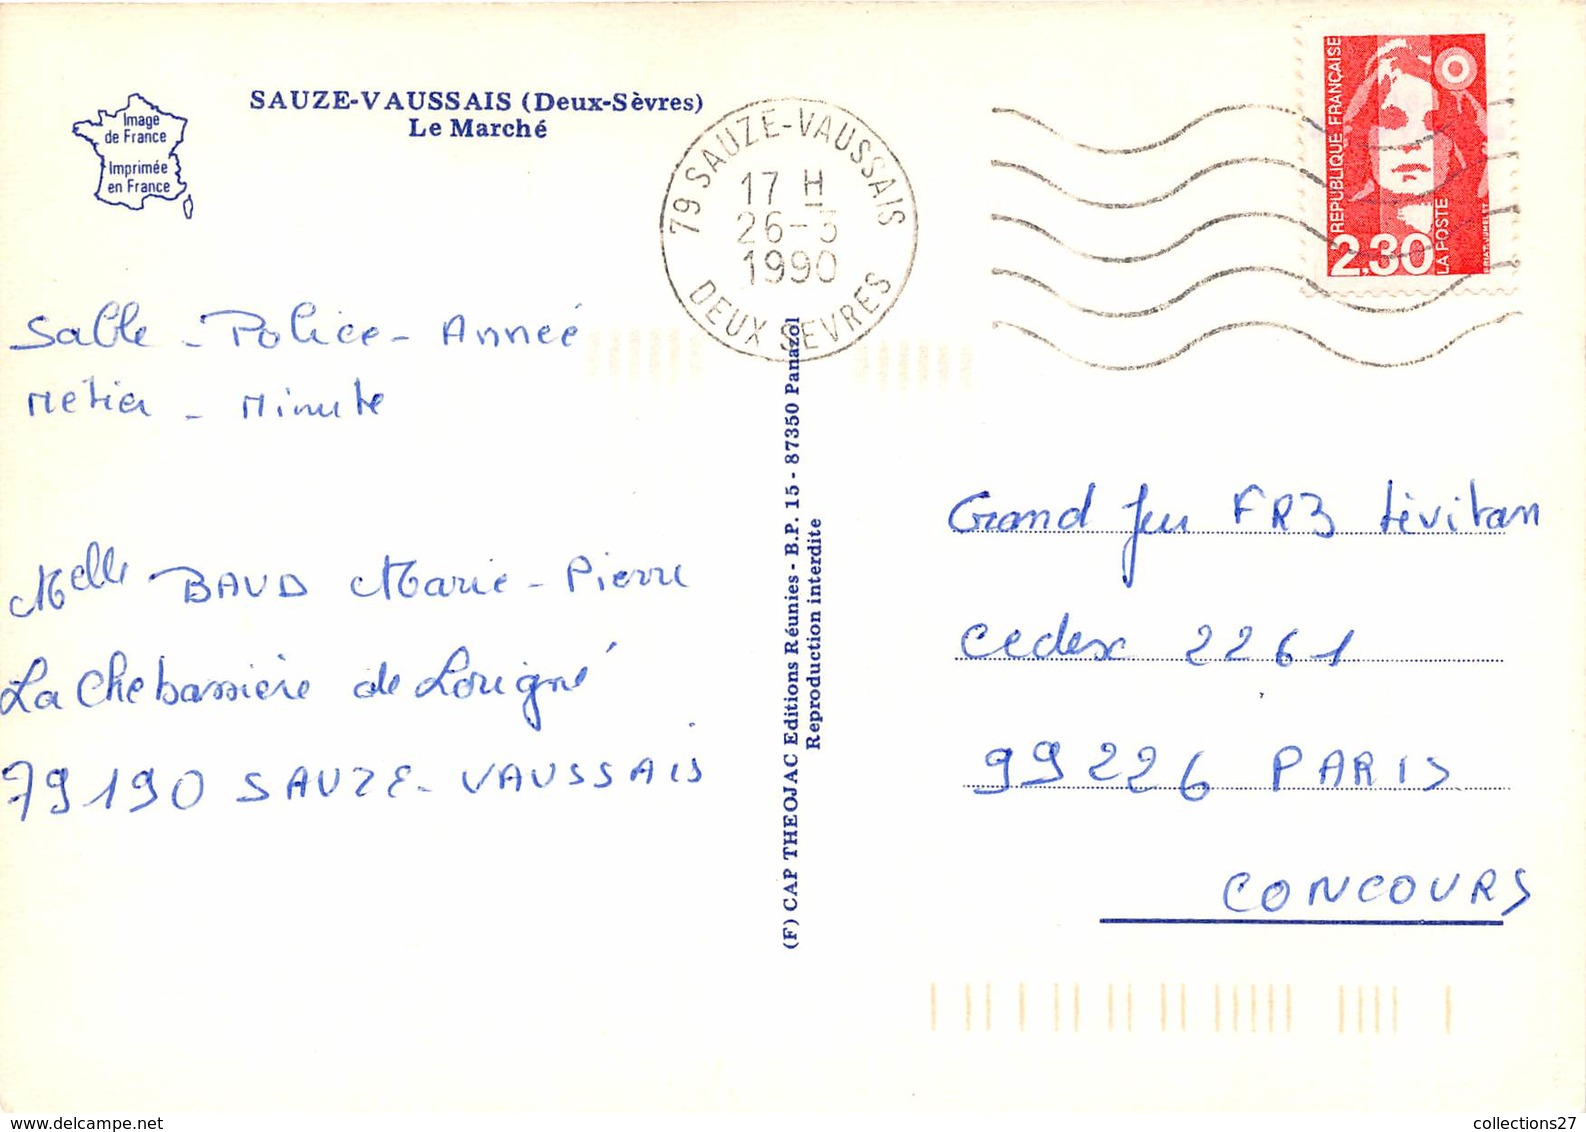 SAUZE-VAUSSAIS (Deux-Sèvres)
Le Marché
Image
de France
Imprimée
en France
79 SAUZE-VAUSSAIS
17 H
26-3
1990
DEUX SEVRES
RÉPUBLIQUE FRANÇAISE
LA POSTE
2,30
Sable - Police - Anneé
Métier - Minute
Melle BAUD Marie-Pierre
La Chebassière de Lorigné
79190 SAUZE-VAUSSAIS
(F) CAP THEOJAC Editions Réunies - B.P. 15 - 87350 Panazol
Reproduction interdite
Grand Jeu FR3 Lévitan
Cedex 2261
99226 PARIS
CONCOURS
collections27